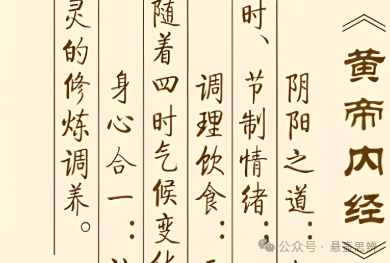 《黄帝内经》
阴阳之道：
时、节制情绪；
调理饮食：
随着四时气候变
身心合一：
灵的修炼调养。
公众号 · 悬壶思